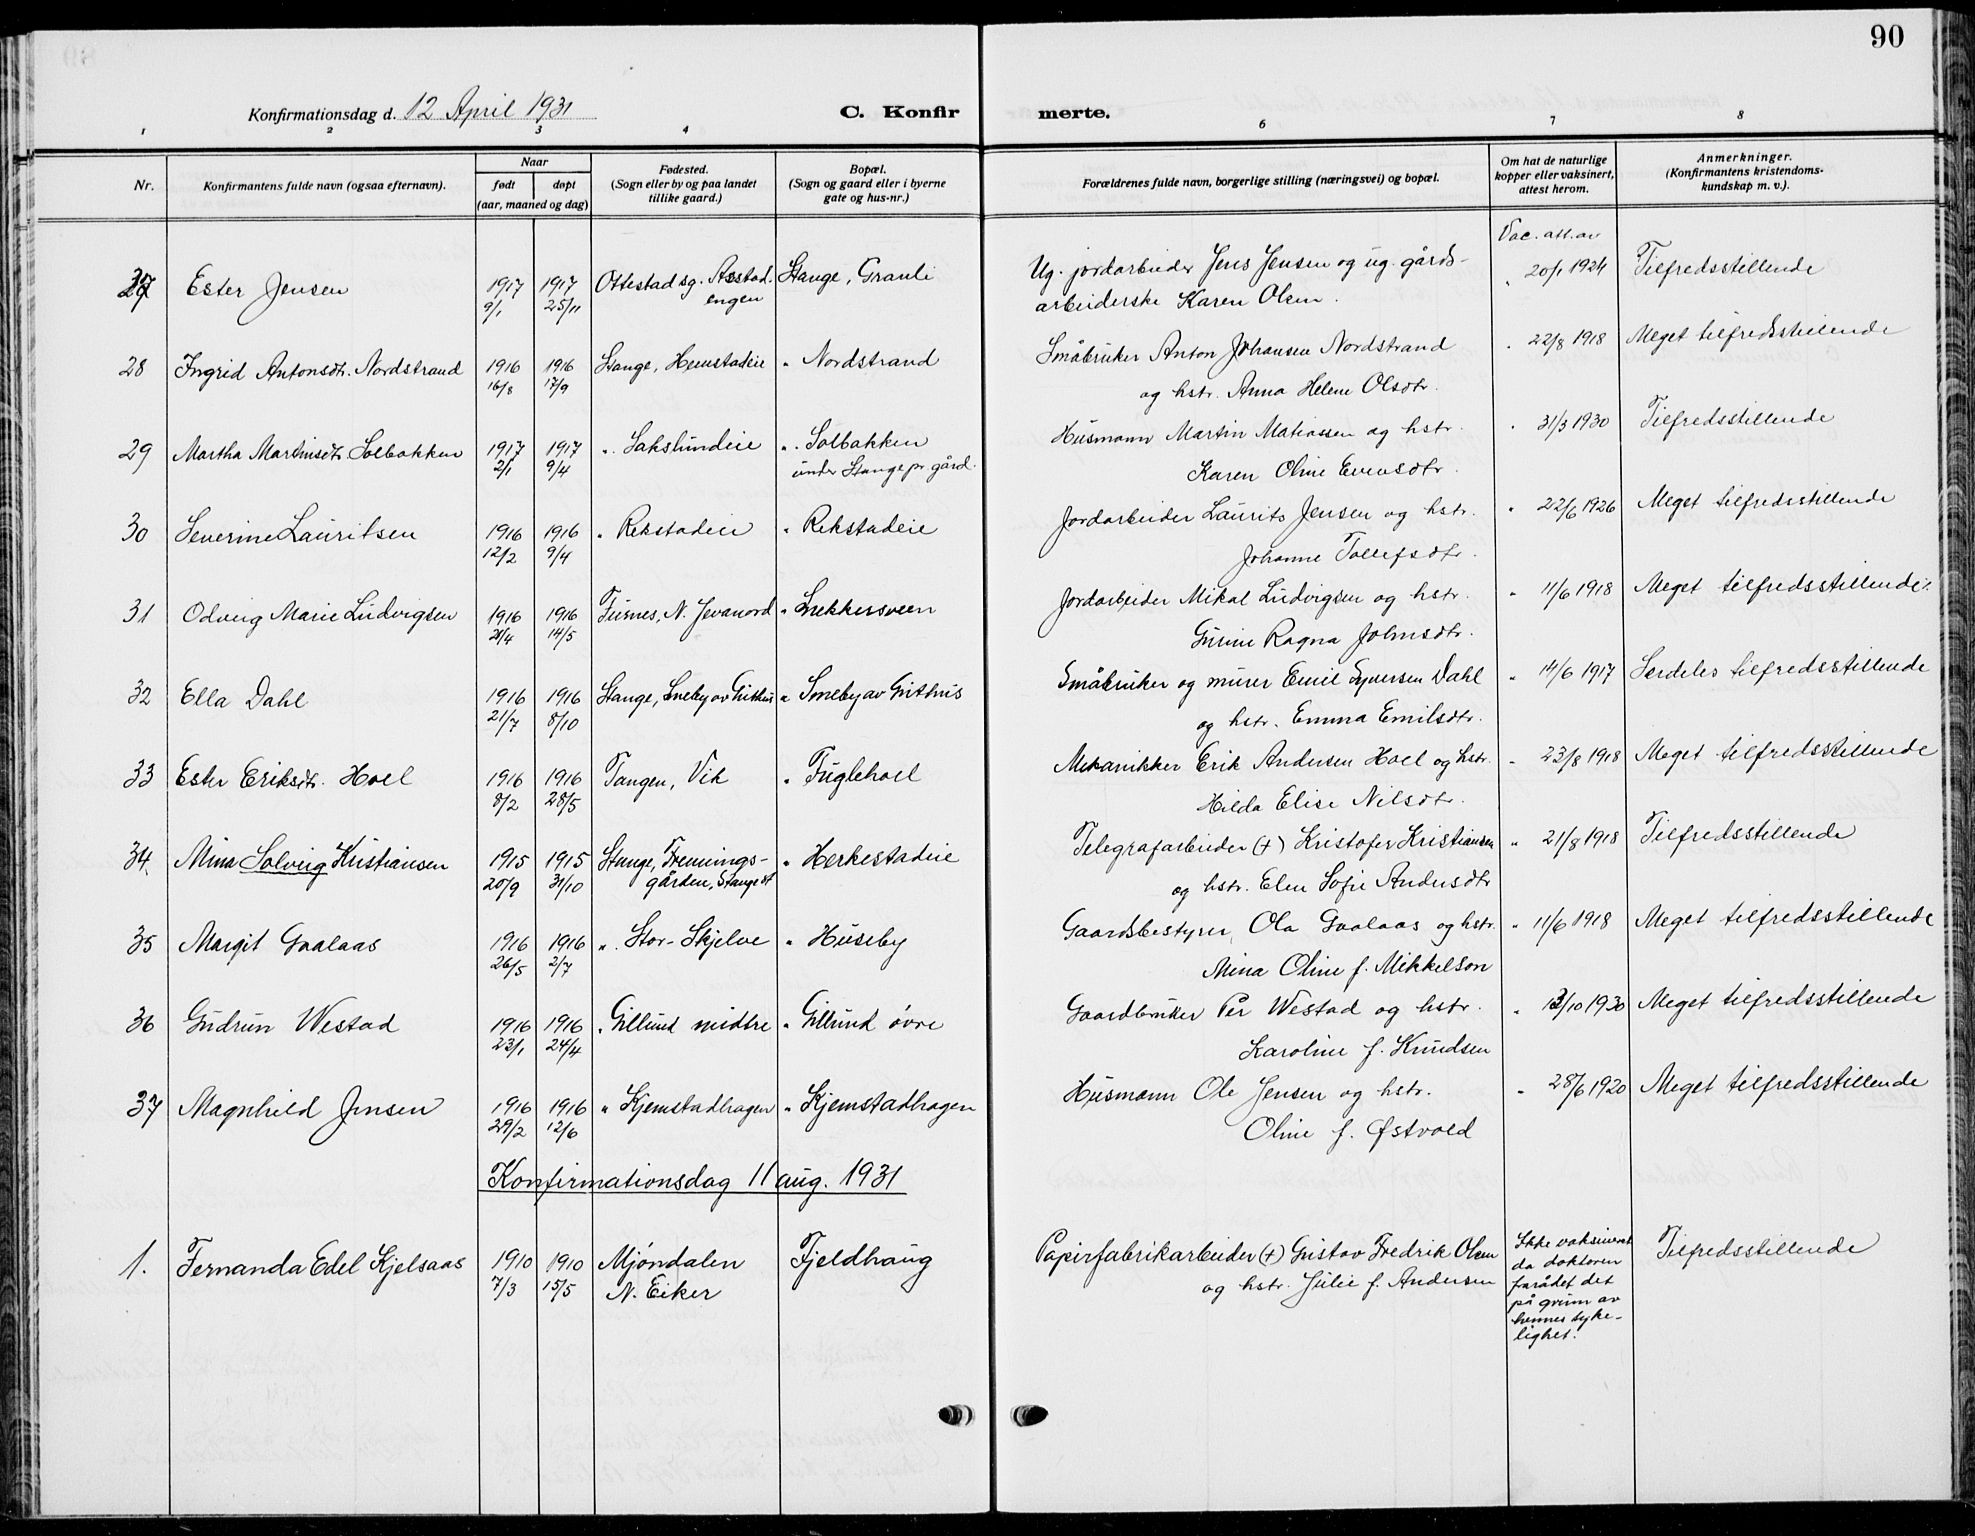 90
Konfirmationsdag d. 12 April 1931
C. Konfirmerte.
1 2 3 4 6 7 8
Nr.
Konfirmantens fulde navn (ogsaa efternavn).
Naar
født døpt
(aar, maaned og dag)
Fødested.
(Sogn eller by og paa landet
tillike gaard.)
Bopæl.
(Sogn og gaard eller i byerne
gate og hus-nr.)
Forældrenes fulde navn, borgerlige stilling (næringsvei) og bopæl.
Om hat de naturlige
kopper eller vaksinert,
attest herom.
Anmerkninger.
(Konfirmantens kristendoms-
kundskap m. v.).
Vac. att. av
27 Ester Jensen 1917 1917 Ottestad sg. Aastad. Stange, Granli Ug. jordarbeider Jens Jensen og ug. gårds- " 20/1 1924 Tilfredsstillende
9/1 25/11 engen arbeiderske Karen Olsen.
28 Ingrid Antonsdtr. Nordstrand 1916 1916 Stange, Hemstadeie " Nordstrand Småbruker Anton Johansen Nordstrand " 22/8 1918 Meget tilfredsstillende
16/8 17/9 og hstr. Anna Helene Olsdtr.
29 Martha Martinsdtr. Solbakken 1917 1917 " Sakslundeie " Solbakken Husmann Martin Matiassen og hstr. " 31/3 1930 Tilfredsstillende
2/1 9/4 under Stange pr. gård. Karen Oline Evensdtr.
30 Severine Lauritsen 1916 1916 " Rekstadeie " Rekstadeie Jordarbeider Laurits Jensen og hstr. " 22/6 1926 Meget tilfredsstillende
12/2 9/4 Johanne Tollefsdtr.
31 Odveig Marie Ludvigsen 1916 1916 Furnes, N. Jevanord " Lykkersveen Jordarbeider Mikal Ludvigsen og hstr. " 11/6 1918 Meget tilfredsstillende.
28/4 14/5 Gurine Ragna Johnsdtr.
32 Ella Dahl 1916 1916 Stange, Smeby av Guthus " Smeby av Guthus Småbruker og murer Emil Syversen Dahl " 14/6 1917 Særdeles tilfredsstillende
21/7 8/10 og hstr. Emma Emilsdtr.
33 Ester Eriksdtr. Hoel 1916 1916 Tangen, Vik " Fuglehoel Mekanikker Erik Andersen Hoel og hstr. " 23/8 1918 Meget tilfredsstillende
8/2 28/5 Hilda Elise Nilsdtr.
34. Mina Solveig Kristiansen 1915 1915 Stange, Frennings- " Herkestadeie Telegrafarbeider (+) Kristofer Kristiansen " 21/8 1918 Tilfredsstillende
20/9 31/10 gården, Stange st og hstr. Elen Sofie Andersdtr
35 Margit Gaalaas 1916 1916 " Stor-Skjelve " Huseby Gaardsbestyrer Ola Gaalaas og hstr. " 11/6 1918 Meget tilfredsstillende
26/5 2/7 Mina Oline f. Mikkelson
36 Gudrun Westad 1916 1916 " Gillund midtre " Gillund øvre Gaardbruker Per Westad og hstr. " 13/10 1930 Meget tilfredsstillende
23/1 24/4 Karoline f. Knudsen
37 Magnhild Jensen 1916 1916 " Kjemstadhagen " Kjemstadhagen Husmann Ole Jensen og hstr. " 28/6 1920 Meget tilfredsstillende
29/2 12/6 Oline f. Østvold
Konfirmationsdag 11 aug. 1931
1. Fernanda Edel Kjelsaas 1910 1910 Mjøndalen Fjeldhaug Papirfabrikarbeider (+) Gustav Fredrik Olsen Ikke vaksinert Tilfredsstillende
7/3 15/5 N. Eiker og hstr. Julie f. Andersen da doktoren
frarådet det
på grunn av
hennes syke-
lighet.